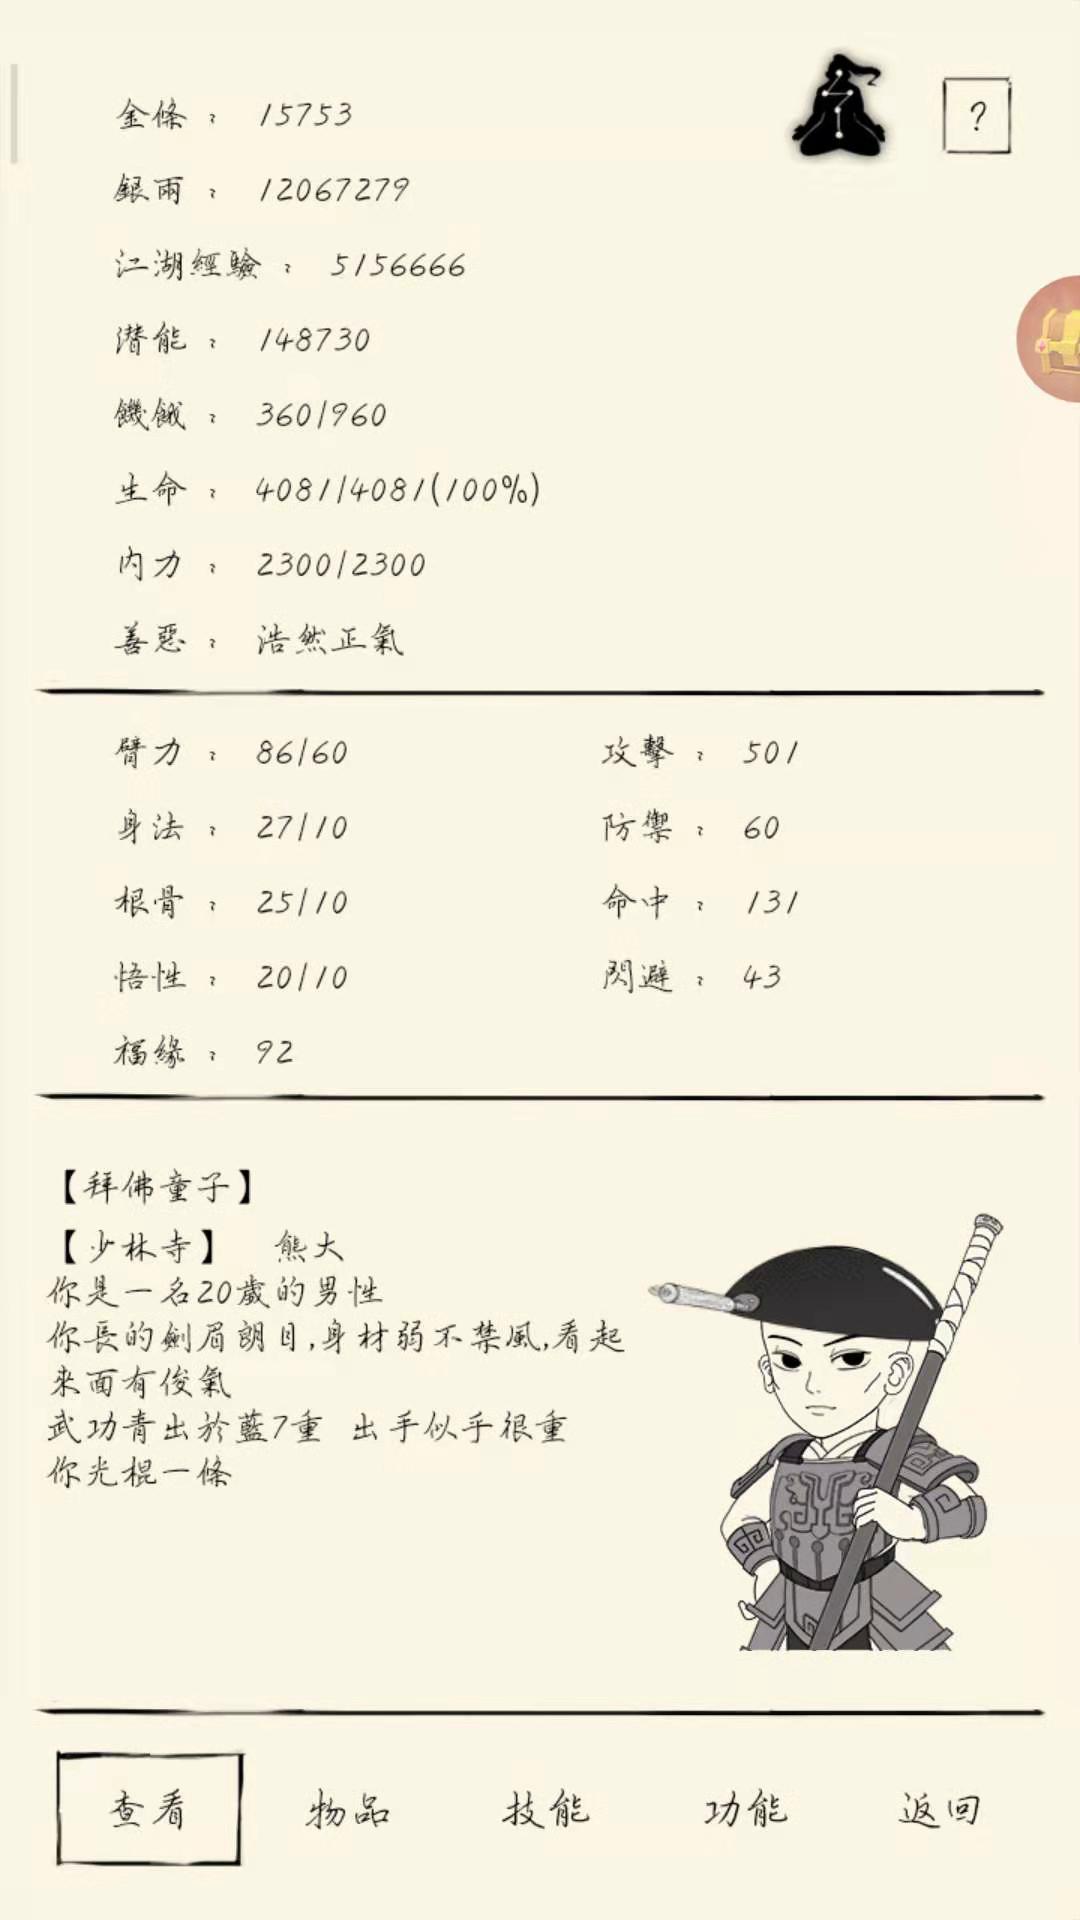 金條： 15753
?
銀兩： 12067279
江湖經驗： 5156666
潜能： 148730
饑餓： 360/960
生命： 4081/4081(100%)
内力： 2300/2300
善惡： 浩然正氣
臂力： 86/60 攻擊： 501
身法： 27/10 防禦： 60
根骨： 25/10 命中： 131
悟性： 20/10 閃避： 43
福緣： 92
【拜佛童子】
【少林寺】 熊大
你是一名20歲的男性
你長的劍眉朗目,身材弱不禁風,看起
來面有俊氣
武功青出於藍7重 出手似乎很重
你光棍一條
查看 物品 技能 功能 返回